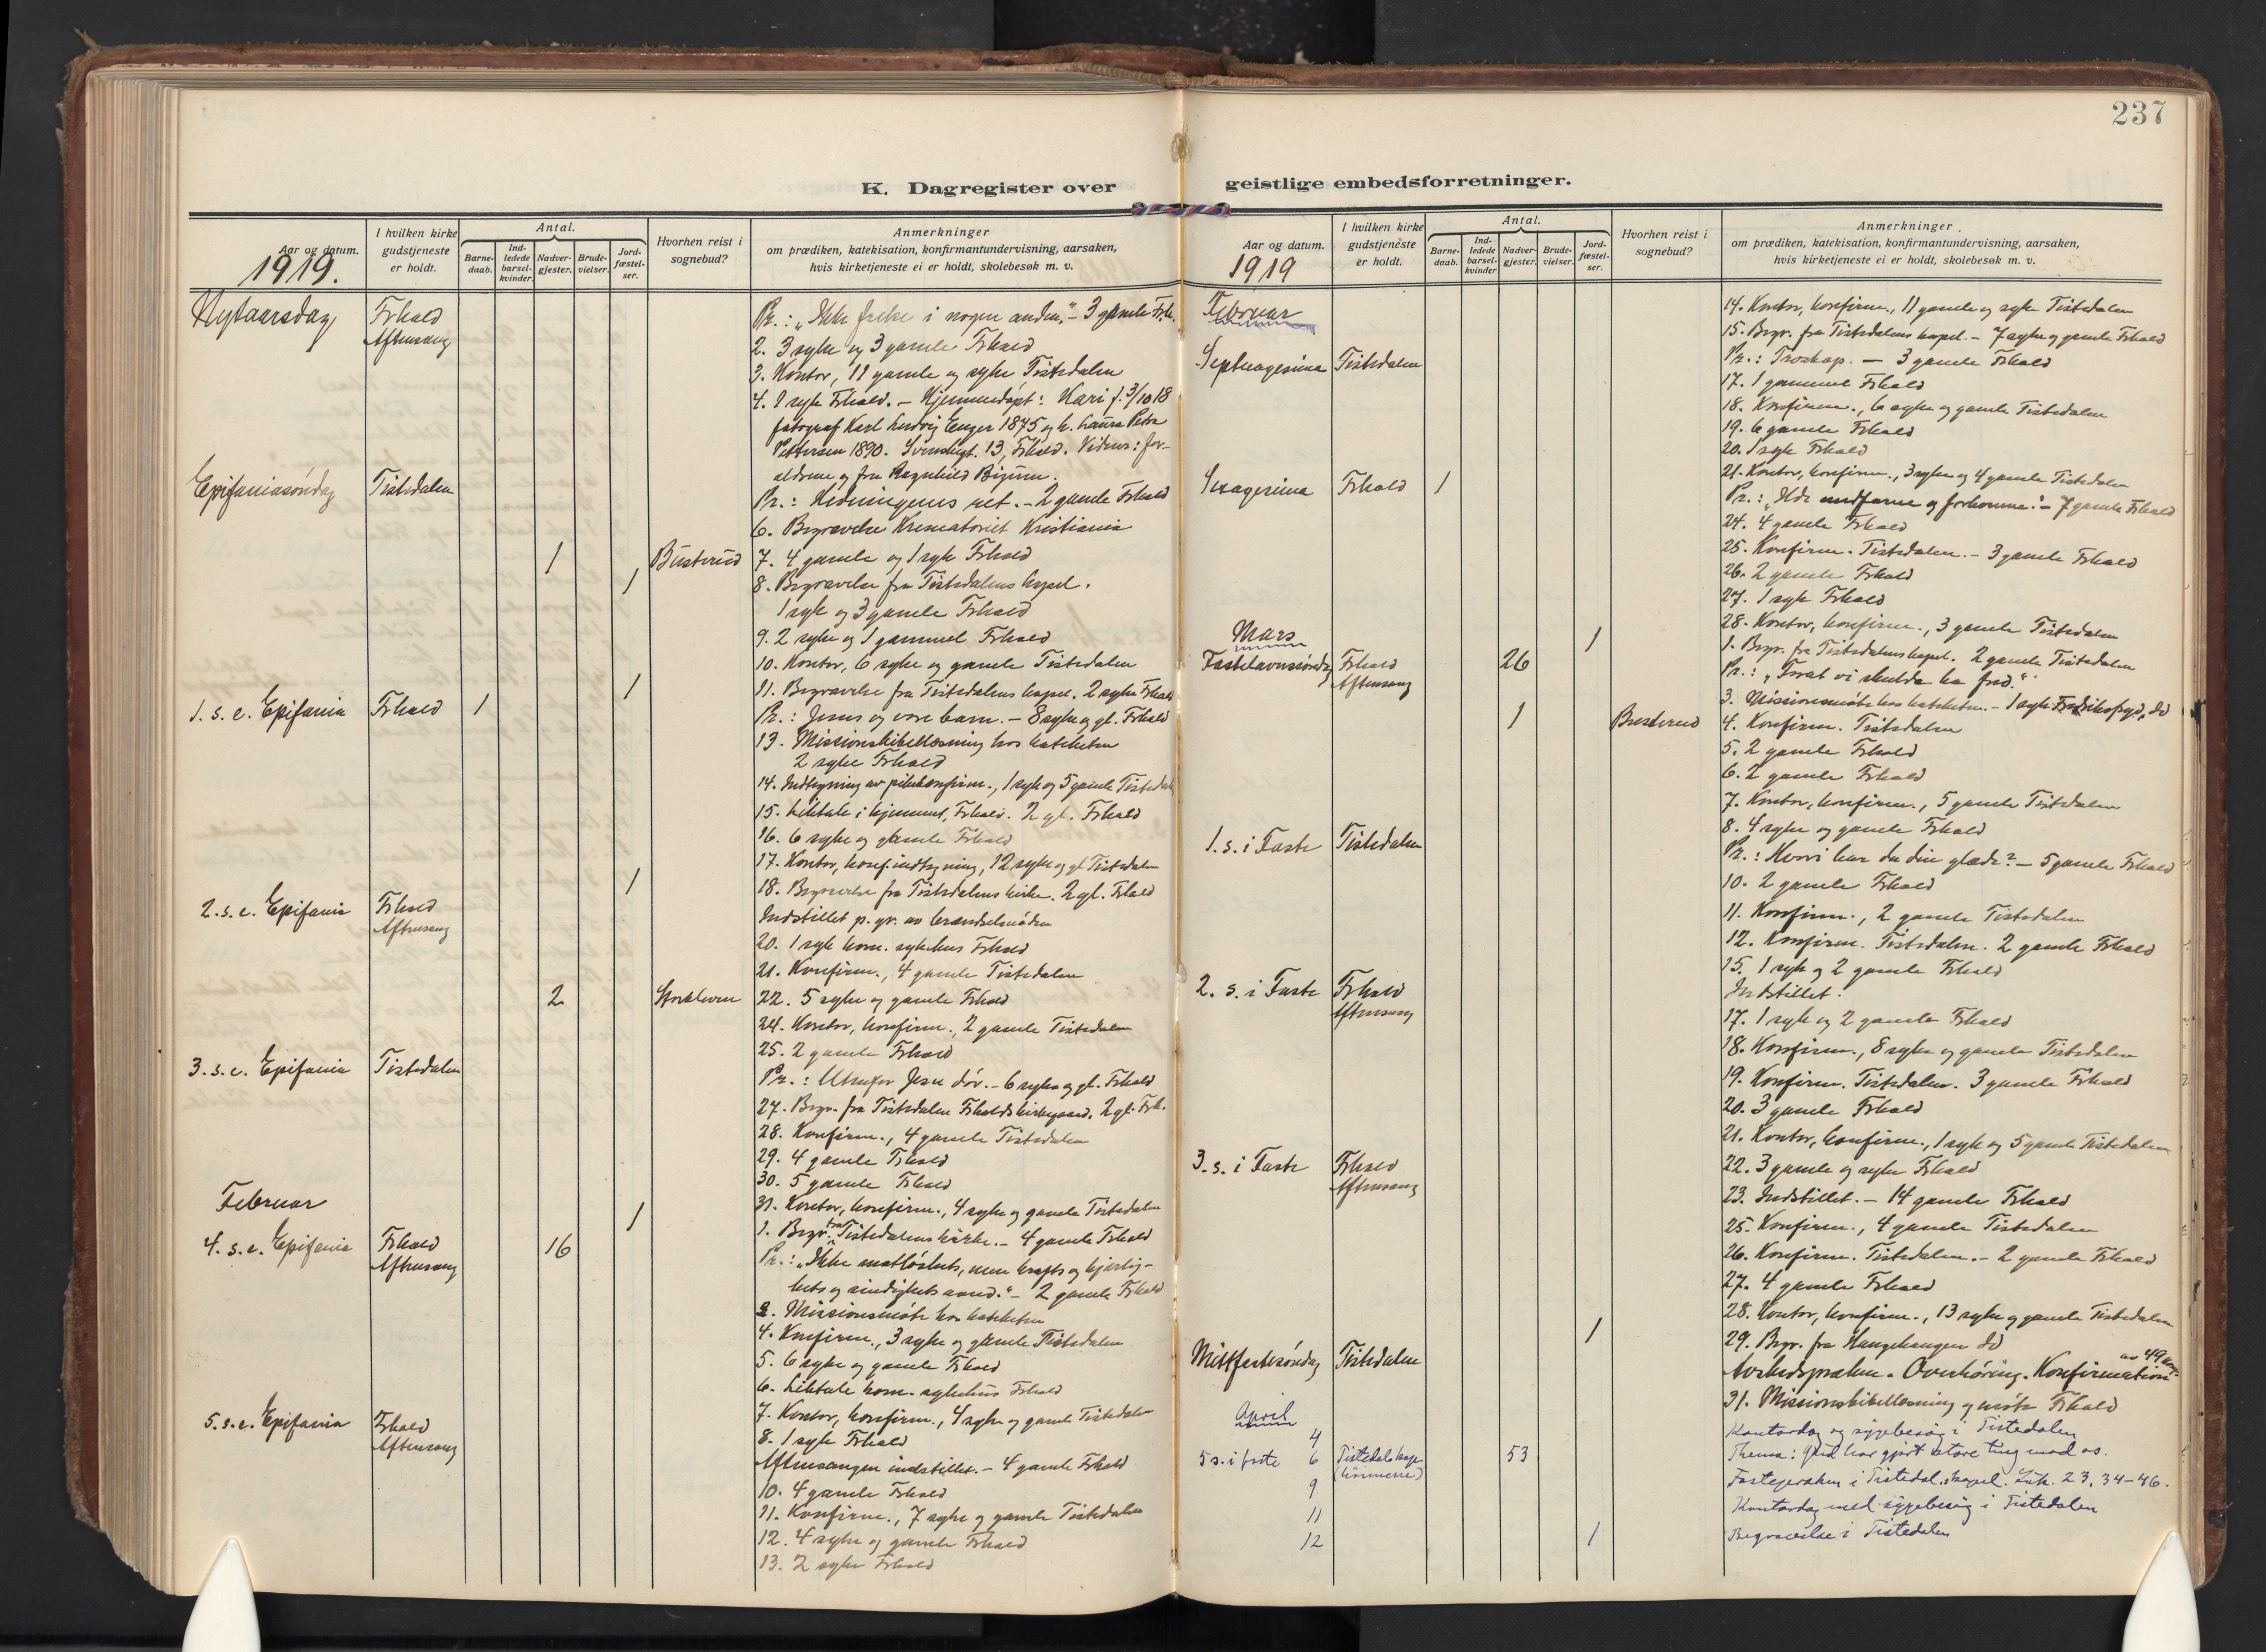 237
K. Dagregister over
Aar og datum.
1919.
I hvilken kirke
gudstjeneste
er holdt.
Antal.
Barne-
daab.
Ind-
ledede
barsel-
kvinder.
Nadver-
gjester.
Brude-
vielser.
Jord-
fæstel-
ser.
Hvorhen reist i
sognebud?
Anmerkninger
om prædiken, katekisation, konfirmantundervisning, aarsaken,
hvis kirketjeneste ei er holdt, skolebesøk m. v.
Nytaarsdag Frhald Pr.: „Ikke frelse i nogen anden." – 3 gamle Frh.
Aftensang
2. 3 syke og 3 gamle Frhald
3. Kontor, 11 gamle og syke Tistedalen
4. 1 syk Frhald. – Hjemmedøpt: Kari f. 3/10 18
fotograf Karl Ludvig Enger 1875 og h. Laura Petra
Pettersen 1890. 13, Frhald. Vidner: for-
ældrene og fru Ragnhild
Epifaniasøndag Tistedalen Pr.: Hedningenes ret. – 2 gamle Frhald
6. Begravelse Krematoriet Kristiania
1 Busterud 7. 4 gamle og 1 syk Frhald
1 8. Begravelse fra Tistedalens kapel.
1 syk og 3 gamle Frhald
9. 2 syke og 1 gammel Frhald
10. Kontor, 6 syke og gamle Tistedalen
1 11. Begravelse fra Tistedalens kapel. 2 syke Frhald
1. s. e. Epifania Frhald 1 Pr.: Jesus og vore barn. – 8 syke og gl. Frhald
13. Missionsbibellæsning hos kateketen
2 syke Frhald
14. Indtegning av pikekonfirm., 1 syk og 5 gamle Tistedalen
15. Liktale i hjemmet, Frhald. 2 gl. Frhald
16. 6 syke og gamle Frhald
17. Kontor, konf.indtegning, 12 syke og gl. Tistedalen
1 18. Begravelse fra Tistedalens kirke. 2 gl. Frhald
2. s. e. Epifania Frhald Indstillet p. gr. av brændselsnøden
Aftensang
20. 1 syk kom. sykehus Frhald
21. Konfirm., 4 gamle Tistedalen
2 22. 5 syke og gamle Frhald
24. Kontor, konfirm., 2 gamle Tistedalen
25. 2 gamle Frhald
3. s. e. Epifania Tistedalen Pr.: Utenfor Jesu dør. – 6 syke og gl. Frhald
27. Begr. fra Tistedalen Frhalds kirkegaard. 2 gl. Frh.
28. Konfirm., 4 gamle Tistedalen
29. 4 gamle Frhald
30. 5 gamle Frhald
Februar 31. Kontor, konfirm., 4 syke og gamle Tistedalen
1 1. Begr. fra Tistedalens kirke. – 4 gamle Frhald
4. s. e. Epifania Frhald 16 Pr.: „Ikke motløshets, men krafts og kjærlig-
Aftensang
hets og sindighets aand." – 2 gamle Frhald
Missionsmøte hos kateketen
4. Konfirm., 3 syke og gamle Tistedalen
5. 6 syke og gamle Frhald
6. Liktale kom. sykehus Frhald
7. Kontor, konfirm., 4 syke og gamle Tistedalen
8. 1 syk Frhald
5. s. e. Epifania Frhald Aftensangen indstillet. – 4 gamle Frhald
Aftensang
10. 4 gamle Frhald
11. Konfirm., 7 syke og gamle Tistedalen
12. 4 syke og gamle Frhald
13. 2 syke Frhald
geistlige embedsforretninger.
Aar og datum.
1919
I hvilken kirke
gudstjeneste
er holdt.
Antal.
Barne-
daab.
Ind-
ledede
barsel-
kvinder
Nadver-
gjester.
Brude-
vielser.
Jord-
fæstel-
ser.
Hvorhen reist i
sognebud?
Anmerkninger
om prædiken, katekisation, konfirmantundervisning, aarsaken,
hvis kirketjeneste ei er holdt, skolebesøk m. v.
Februar 14. Kontor, konfirm., 11 gamle og syke Tistedalen
15. Begr. fra Tistedalens kapel. – 7 syke og gamle Frhald
Septuagesima Tistedalen Pr.: Troskap. – 3 gamle Frhald
17. 1 gammel Frhald
18. Konfirm., 6 syke og gamle Tistedalen
19. 6 gamle Frhald
20. 1 syk Frhald
21. Kontor, konfirm., 3 syke og 4 gamle Tistedalen
Sexagesima Frhald 1 Pr.: – 7 gamle Frhald
24. 4 gamle Frhald
25. Konfirm. Tistedalen. – 3 gamle Frhald
26. 2 gamle Frhald
27. 1 syk Frhald
28. Kontor, konfirm., 3 gamle Tistedalen
Mars 1 1. Begr. fra Tistedalens kapel. 2 gamle Tistedalen
Fastelavnssøndag Frhald 26 Pr.: „Forat vi skulde ha fred."
Aftensang
3. Missionsmøte hos kateketen. – 1 syk
1 Busterud 4. Konfirm. Tistedalen
5. 2 gamle Frhald
6. 2 gamle Frhald
7. Kontor, konfirm., 5 gamle Tistedalen
8. 4 syke og gamle Frhald
1. s. i Faste Tistedalen Pr.: Hvori har du din glæde? – 5 gamle Frhald
10. 2 gamle Frhald
11. Konfirm., 2 gamle Tistedalen
12. Konfirm. Tistedalen. 2 gamle Frhald
15. 1 syk og 2 gamle Frhald
2. s. i Faste Frhald Indstillet.
Aftensang
17. 1 syk og 2 gamle Frhald
18. Konfirm., 8 syke og gamle Tistedalen
19. Konfirm. Tistedalen. 3 gamle Frhald
20. 3 gamle Frhald
21. Kontor, konfirm., 1 syk og 5 gamle Tistedalen
22. 3 gamle og syke Frhald
3. s. i Faste Frhald 23. Indstillet. – 14 gamle Frhald
Aftensang
25. Konfirm., 4 gamle Tistedalen
26. Konfirm. Tistedalen. – 2 gamle Frhald
27. 4 gamle Frhald
28. Kontor, konfirm., 13 syke og gamle Tistedalen
1 29. Begr. fra Haugehaugen
Midtfastesøndag Tistedalen Avskedspræken. Overhøring. Konfirmation av 49
31. Missionsbibellæsning og møte Frhald
April
4 Kontordag og sygebesøg i Tistedalen
5 s. i faste 6 Tistedals kap. 53 Thema: Gud har gjort store ting mod os.
9 Fastepræken i Tistedal. kapel. Luk. 23, 34–46.
11 Kontordag med sygebesøg i Tistedalen
12 1 Begravelse i Tistedalen